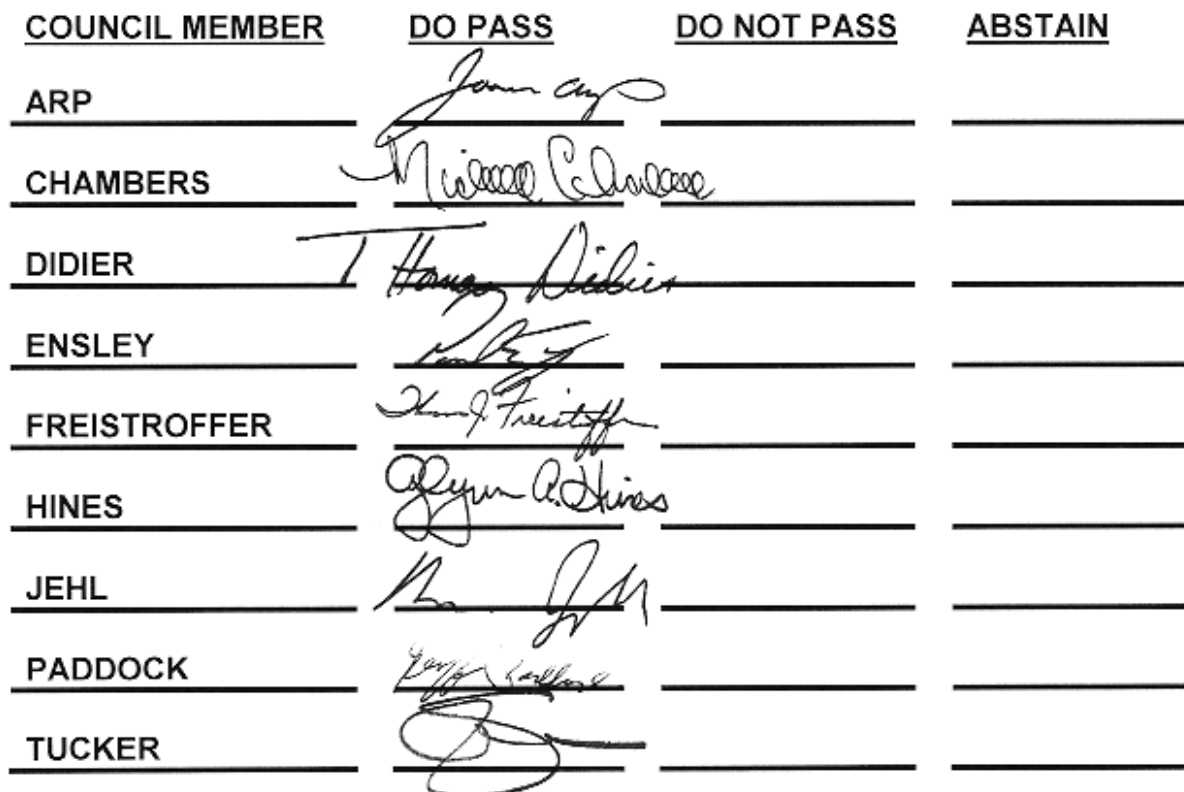 COUNCIL MEMBER DO PASS DO NOT PASS ABSTAIN
ARP
CHAMBERS Michelle Chambers
DIDIER Thomas Didier
ENSLEY
FREISTROFFER Freistroffer
HINES Glynn A. Hines
JEHL
PADDOCK
TUCKER